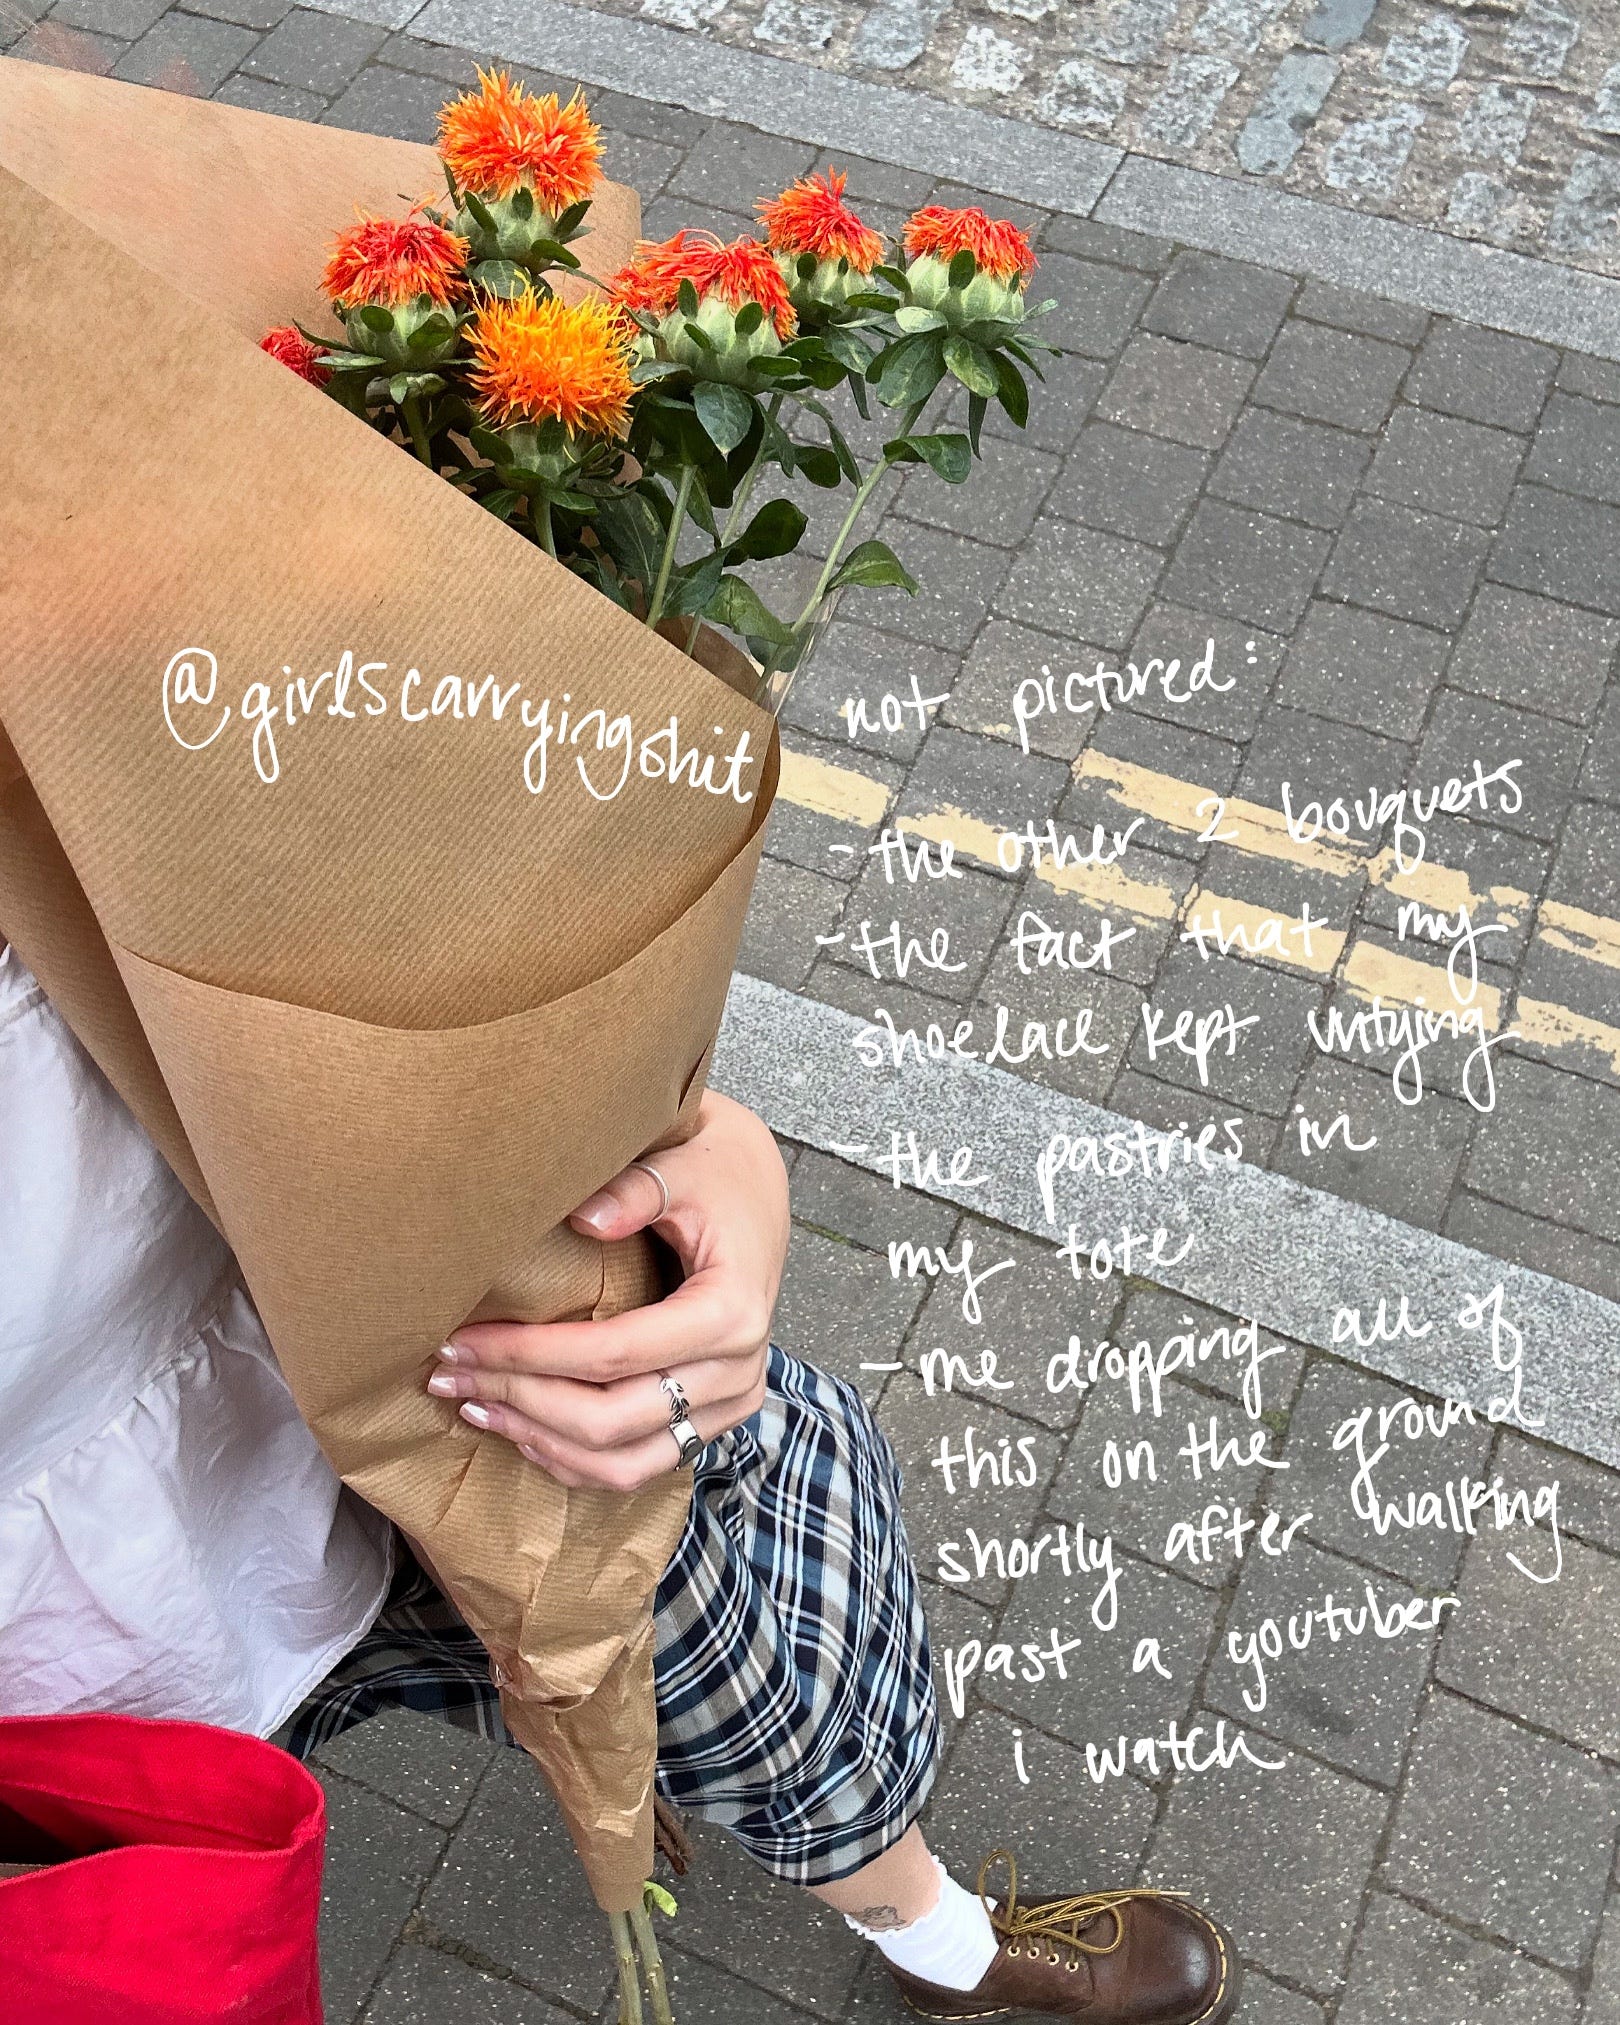 @girlscarryingshit
not pictured:
- the other 2 bouquets
- the fact that my
shoelace kept untying
- the pastries in
my tote
- me dropping all of
this on the ground
shortly after walking
past a youtuber
i watch